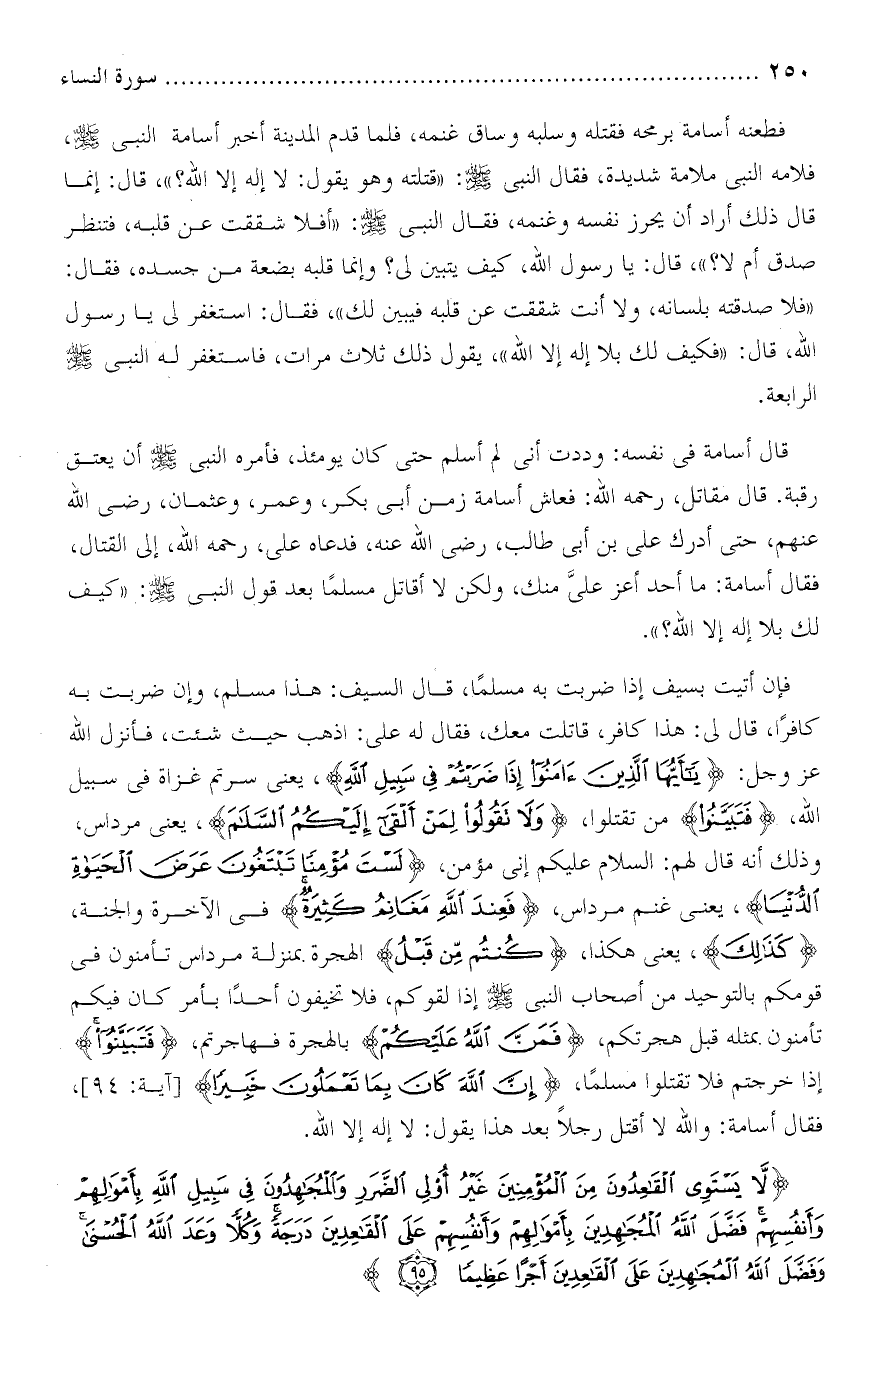 ٢٥٠ ........................................................................ سورة النساء
فطعنه أسامة برمحه فقتله وسلبه وساق غنمه، فلما قدم المدينة أخبر أسامة النبى ﷺ،
فلامه النبى ملامة شديدة، فقال النبى ﷺ: «قتلته وهو يقول: لا إله إلا الله؟»، قال: إنما
قال ذلك أراد أن يحرز نفسه وغنمه، فقال النبى ﷺ: «أفلا شققت عن قلبه، فتنظر
صدق أم لا؟»، قال: يا رسول الله، كيف يتبين لى؟ وإنما قلبه بضعة من جسده، فقال:
«فلا صدقته بلسانه، ولا أنت شققت عن قلبه فيبين لك»، فقال: استغفر لى يا رسول
الله، قال: «فكيف لك بلا إله إلا الله»، يقول ذلك ثلاث مرات، فاستغفر له النبى ﷺ
الرابعة.
قال أسامة فى نفسه: وددت أنى لم أسلم حتى كان يومئذ، فأمره النبى ﷺ أن يعتق
رقبة. قال مقاتل، رحمه الله: فعاش أسامة زمن أبى بكر، وعمر، وعثمان، رضى الله
عنهم، حتى أدرك على بن أبى طالب، رضى الله عنه، فدعاه على، رحمه الله، إلى القتال،
فقال أسامة: ما أحد أعز علىَّ منك، ولكن لا أقاتل مسلمًا بعد قول النبى ﷺ: «كيف
لك بلا إله إلا الله؟».
فإن أتيت بسيف إذا ضربت به مسلمًا، قال السيف: هذا مسلم، وإن ضربت به
كافرًا، قال لى: هذا كافر، قاتلت معك، فقال له على: اذهب حيث شئت، فأنزل الله
عز وجل: ﴿يَٰٓأَيُّهَا ٱلَّذِينَ ءَامَنُوٓاْ إِذَا ضَرَبۡتُمۡ فِي سَبِيلِ ٱللَّهِ﴾، يعنى سرتم غزاة فى سبيل
الله، ﴿فَتَبَيَّنُواْ﴾ من تقتلوا، ﴿وَلَا تَقُولُواْ لِمَنۡ أَلۡقَىٰٓ إِلَيۡكُمُ ٱلسَّلَٰمَ﴾، يعنى مرداس،
وذلك أنه قال لهم: السلام عليكم إنى مؤمن، ﴿لَسۡتَ مُؤۡمِنٗا تَبۡتَغُونَ عَرَضَ ٱلۡحَيَوٰةِ
ٱلدُّنۡيَا﴾، يعنى غنم مرداس، ﴿فَعِندَ ٱللَّهِ مَغَانِمُ كَثِيرَةٞۚ﴾ فى الآخرة والجنة،
﴿كَذَٰلِكَ﴾، يعنى هكذا، ﴿كُنتُم مِّن قَبۡلُ﴾ الهجرة بمنزلة مرداس تأمنون فى
قومكم بالتوحيد من أصحاب النبى ﷺ إذا لقوكم، فلا تخيفون أحدًا بأمر كان فيكم
تأمنون بمثله قبل هجرتكم، ﴿فَمَنَّ ٱللَّهُ عَلَيۡكُمۡ﴾ بالهجرة فهاجرتم، ﴿فَتَبَيَّنُوٓاْۚ﴾
إذا خرجتم فلا تقتلوا مسلمًا، ﴿إِنَّ ٱللَّهَ كَانَ بِمَا تَعۡمَلُونَ خَبِيرٗا﴾ [آية: ٩٤]،
فقال أسامة: والله لا أقتل رجلاً بعد هذا يقول: لا إله إلا الله.
﴿لَّا يَسۡتَوِي ٱلۡقَٰعِدُونَ مِنَ ٱلۡمُؤۡمِنِينَ غَيۡرُ أُوْلِي ٱلضَّرَرِ وَٱلۡمُجَٰهِدُونَ فِي سَبِيلِ ٱللَّهِ بِأَمۡوَٰلِهِمۡ
وَأَنفُسِهِمۡۚ فَضَّلَ ٱللَّهُ ٱلۡمُجَٰهِدِينَ بِأَمۡوَٰلِهِمۡ وَأَنفُسِهِمۡ عَلَى ٱلۡقَٰعِدِينَ دَرَجَةٗۚ وَكُلّٗا وَعَدَ ٱللَّهُ ٱلۡحُسۡنَىٰۚ
وَفَضَّلَ ٱللَّهُ ٱلۡمُجَٰهِدِينَ عَلَى ٱلۡقَٰعِدِينَ أَجۡرًا عَظِيمٗا ٩٥﴾